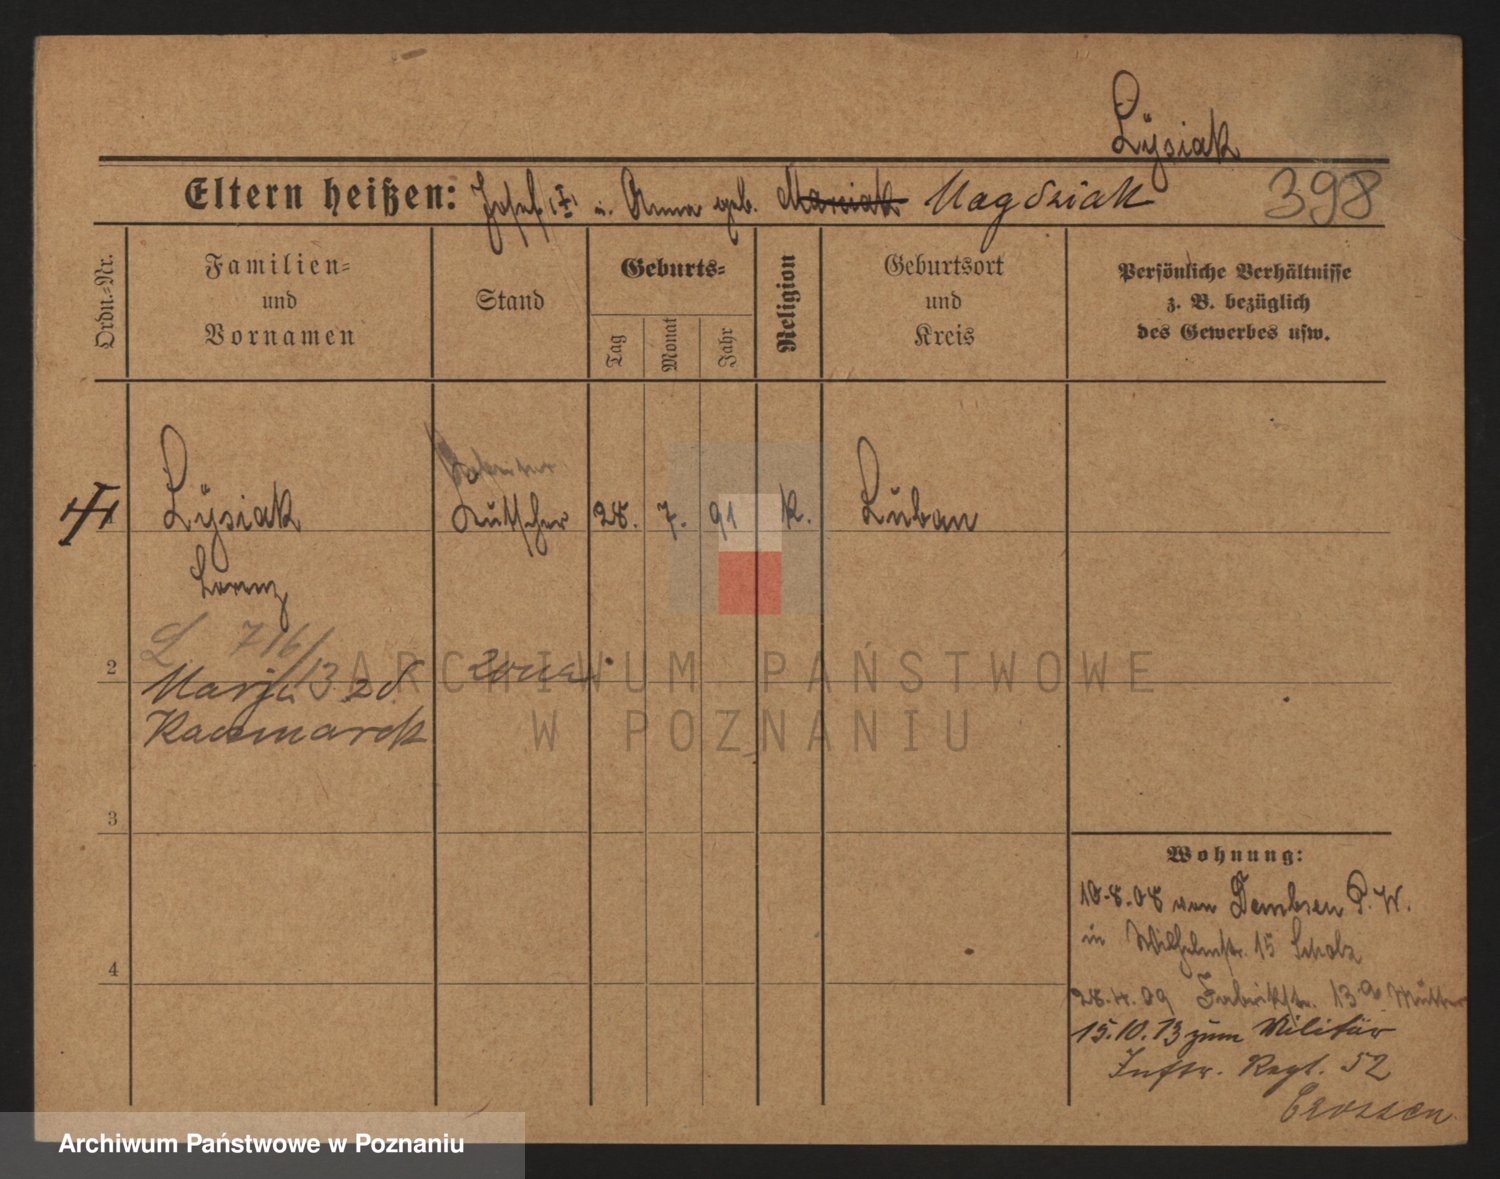 Lÿsiak
Eltern heißen: Josef u. Anna geb. Marciak Magdziak 398
Ordn.-Nr.
Familien-
und
Vornamen
Stand
Geburts-
Tag
Monat
Jahr
Religion
Geburtsort
und
Kreis
Persönliche Verhältnisse
z. B. bezüglich
des Gewerbes usw.
1 Lÿsiak Kutscher 28. 7. 91 k. Luban
Lorenz
L 716/13
2 Marja zd. żona
Kaczmarek
3
4
Wohnung:
10.8.08 von Dembsen P. W.
in Wilhelmstr. 15 Scholz
28.4.09 Fabrikstr. 13a Mutter
15.10.13 zum Militär
Inftr. Regt. 52
Crossen
ARCHIWUM PAŃSTWOWE
W POZNANIU
Archiwum Państwowe w Poznaniu